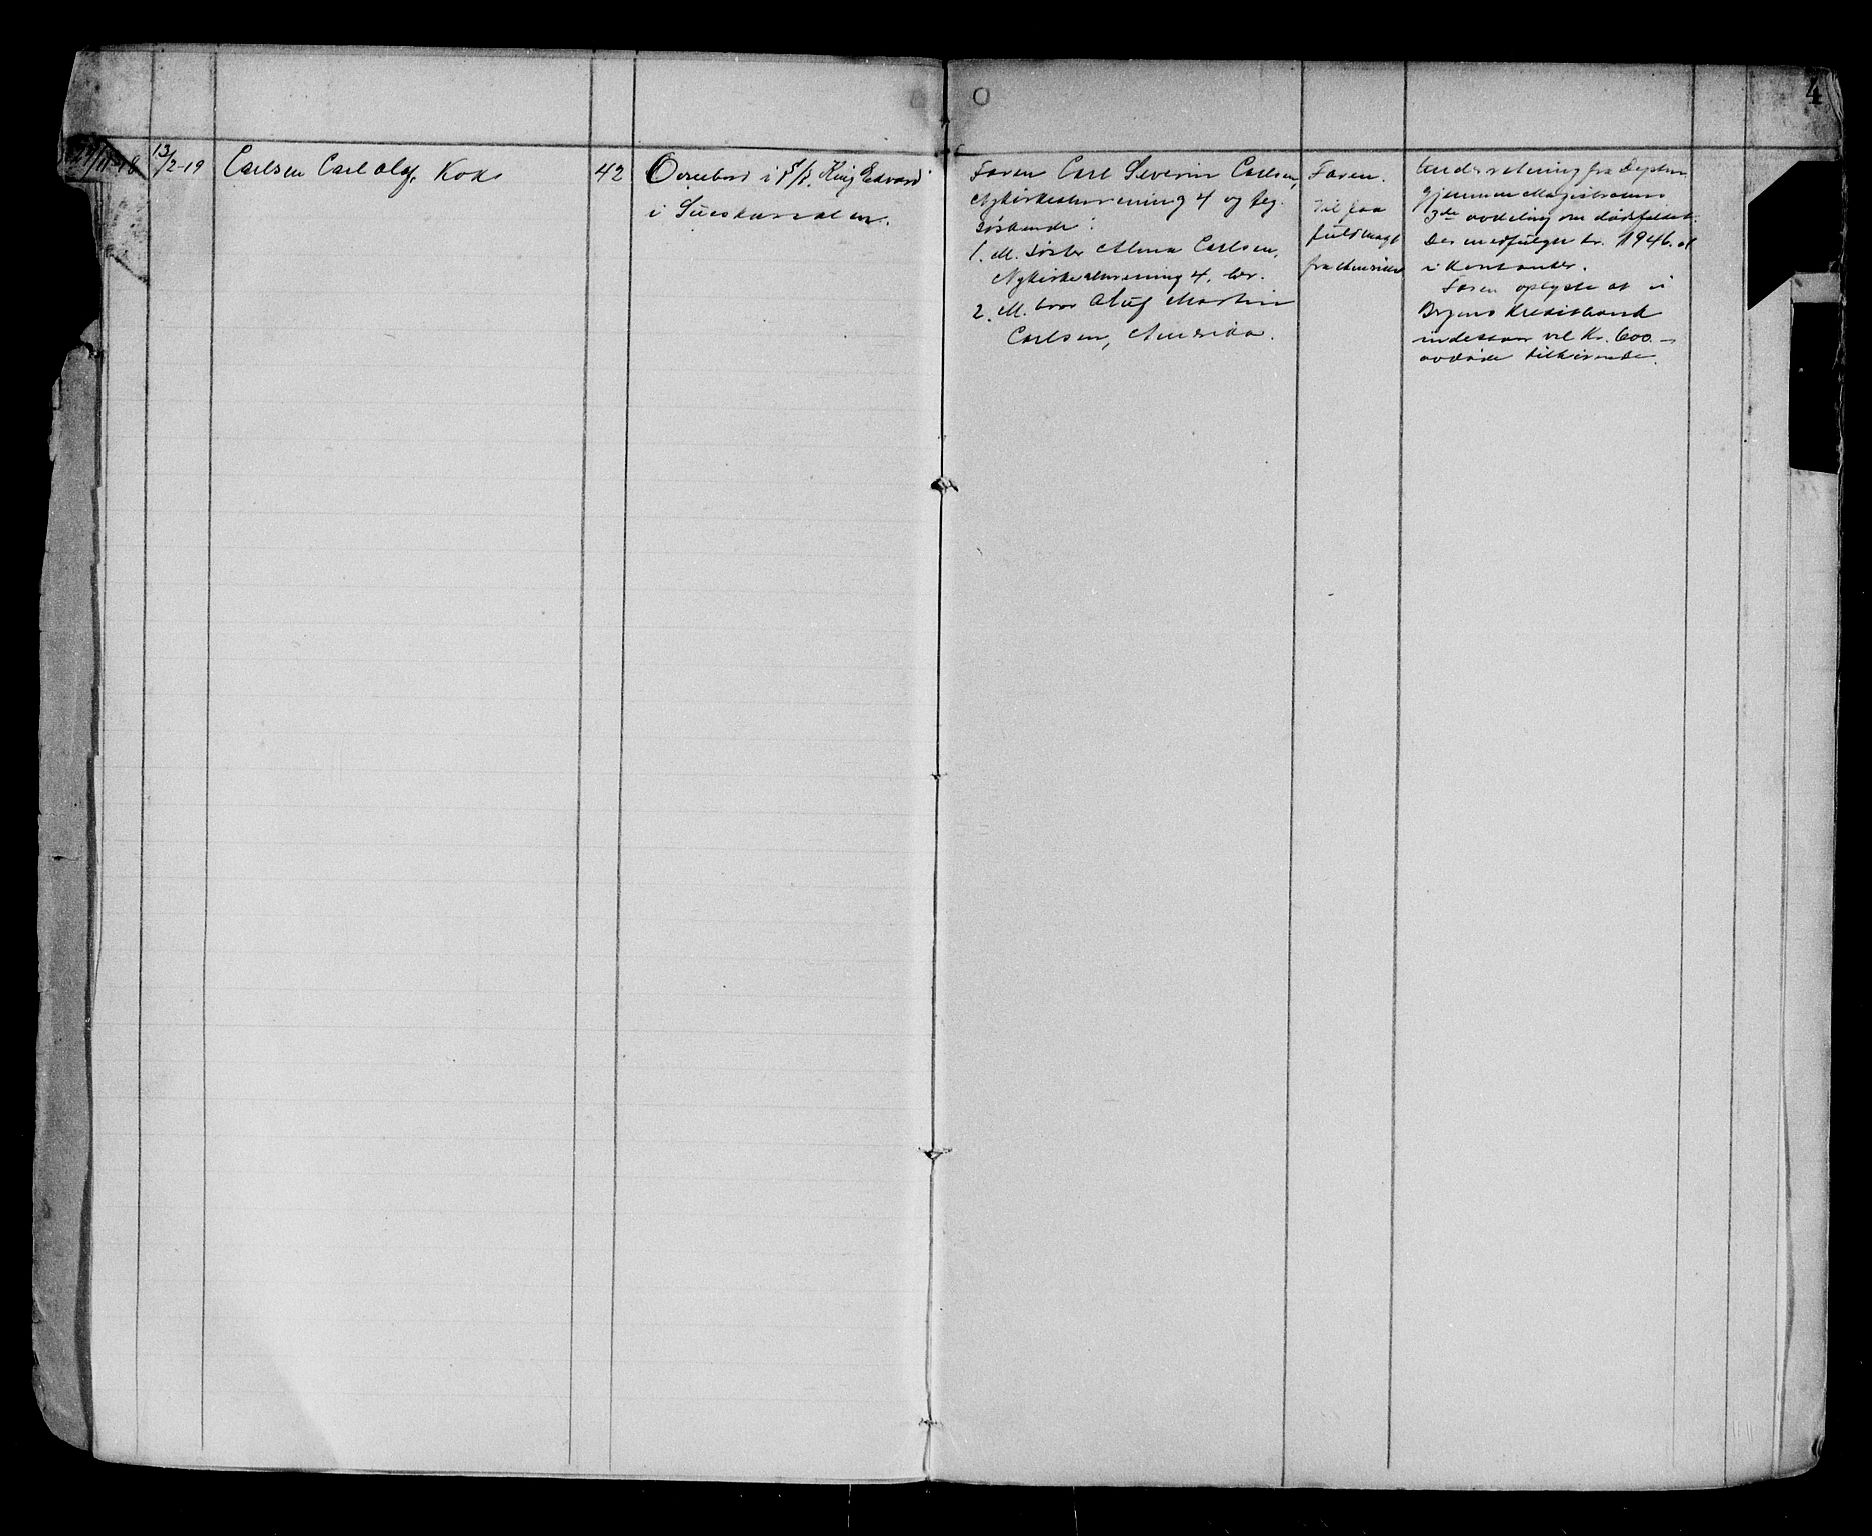 4
11-18 13/2-19 Carlsen Carl Olaf, Kok 42 Overbord i S/S. King Edward
i Sueskanalen.
Faren Carl Severin Carlsen,
Nykirkealmenning 4 og
søskende:
1. M. søster Alma Carlsen,
Nykirkealmenning 4, her.
2. M. bror Oluf Martin
Carlsen, Amerika.
Faren.
Vil faa
fuldmagt
fra Amerika
Underretning fra Dept.
gjennem Magistratens
3de avdeling om dødsfaldet.
Der medfølger kr. 1946.
i kontanter.
Faren oplyste at i
Bergens Kreditbank
indestaar vel Kr. 600.-
avdøde tilhørende.